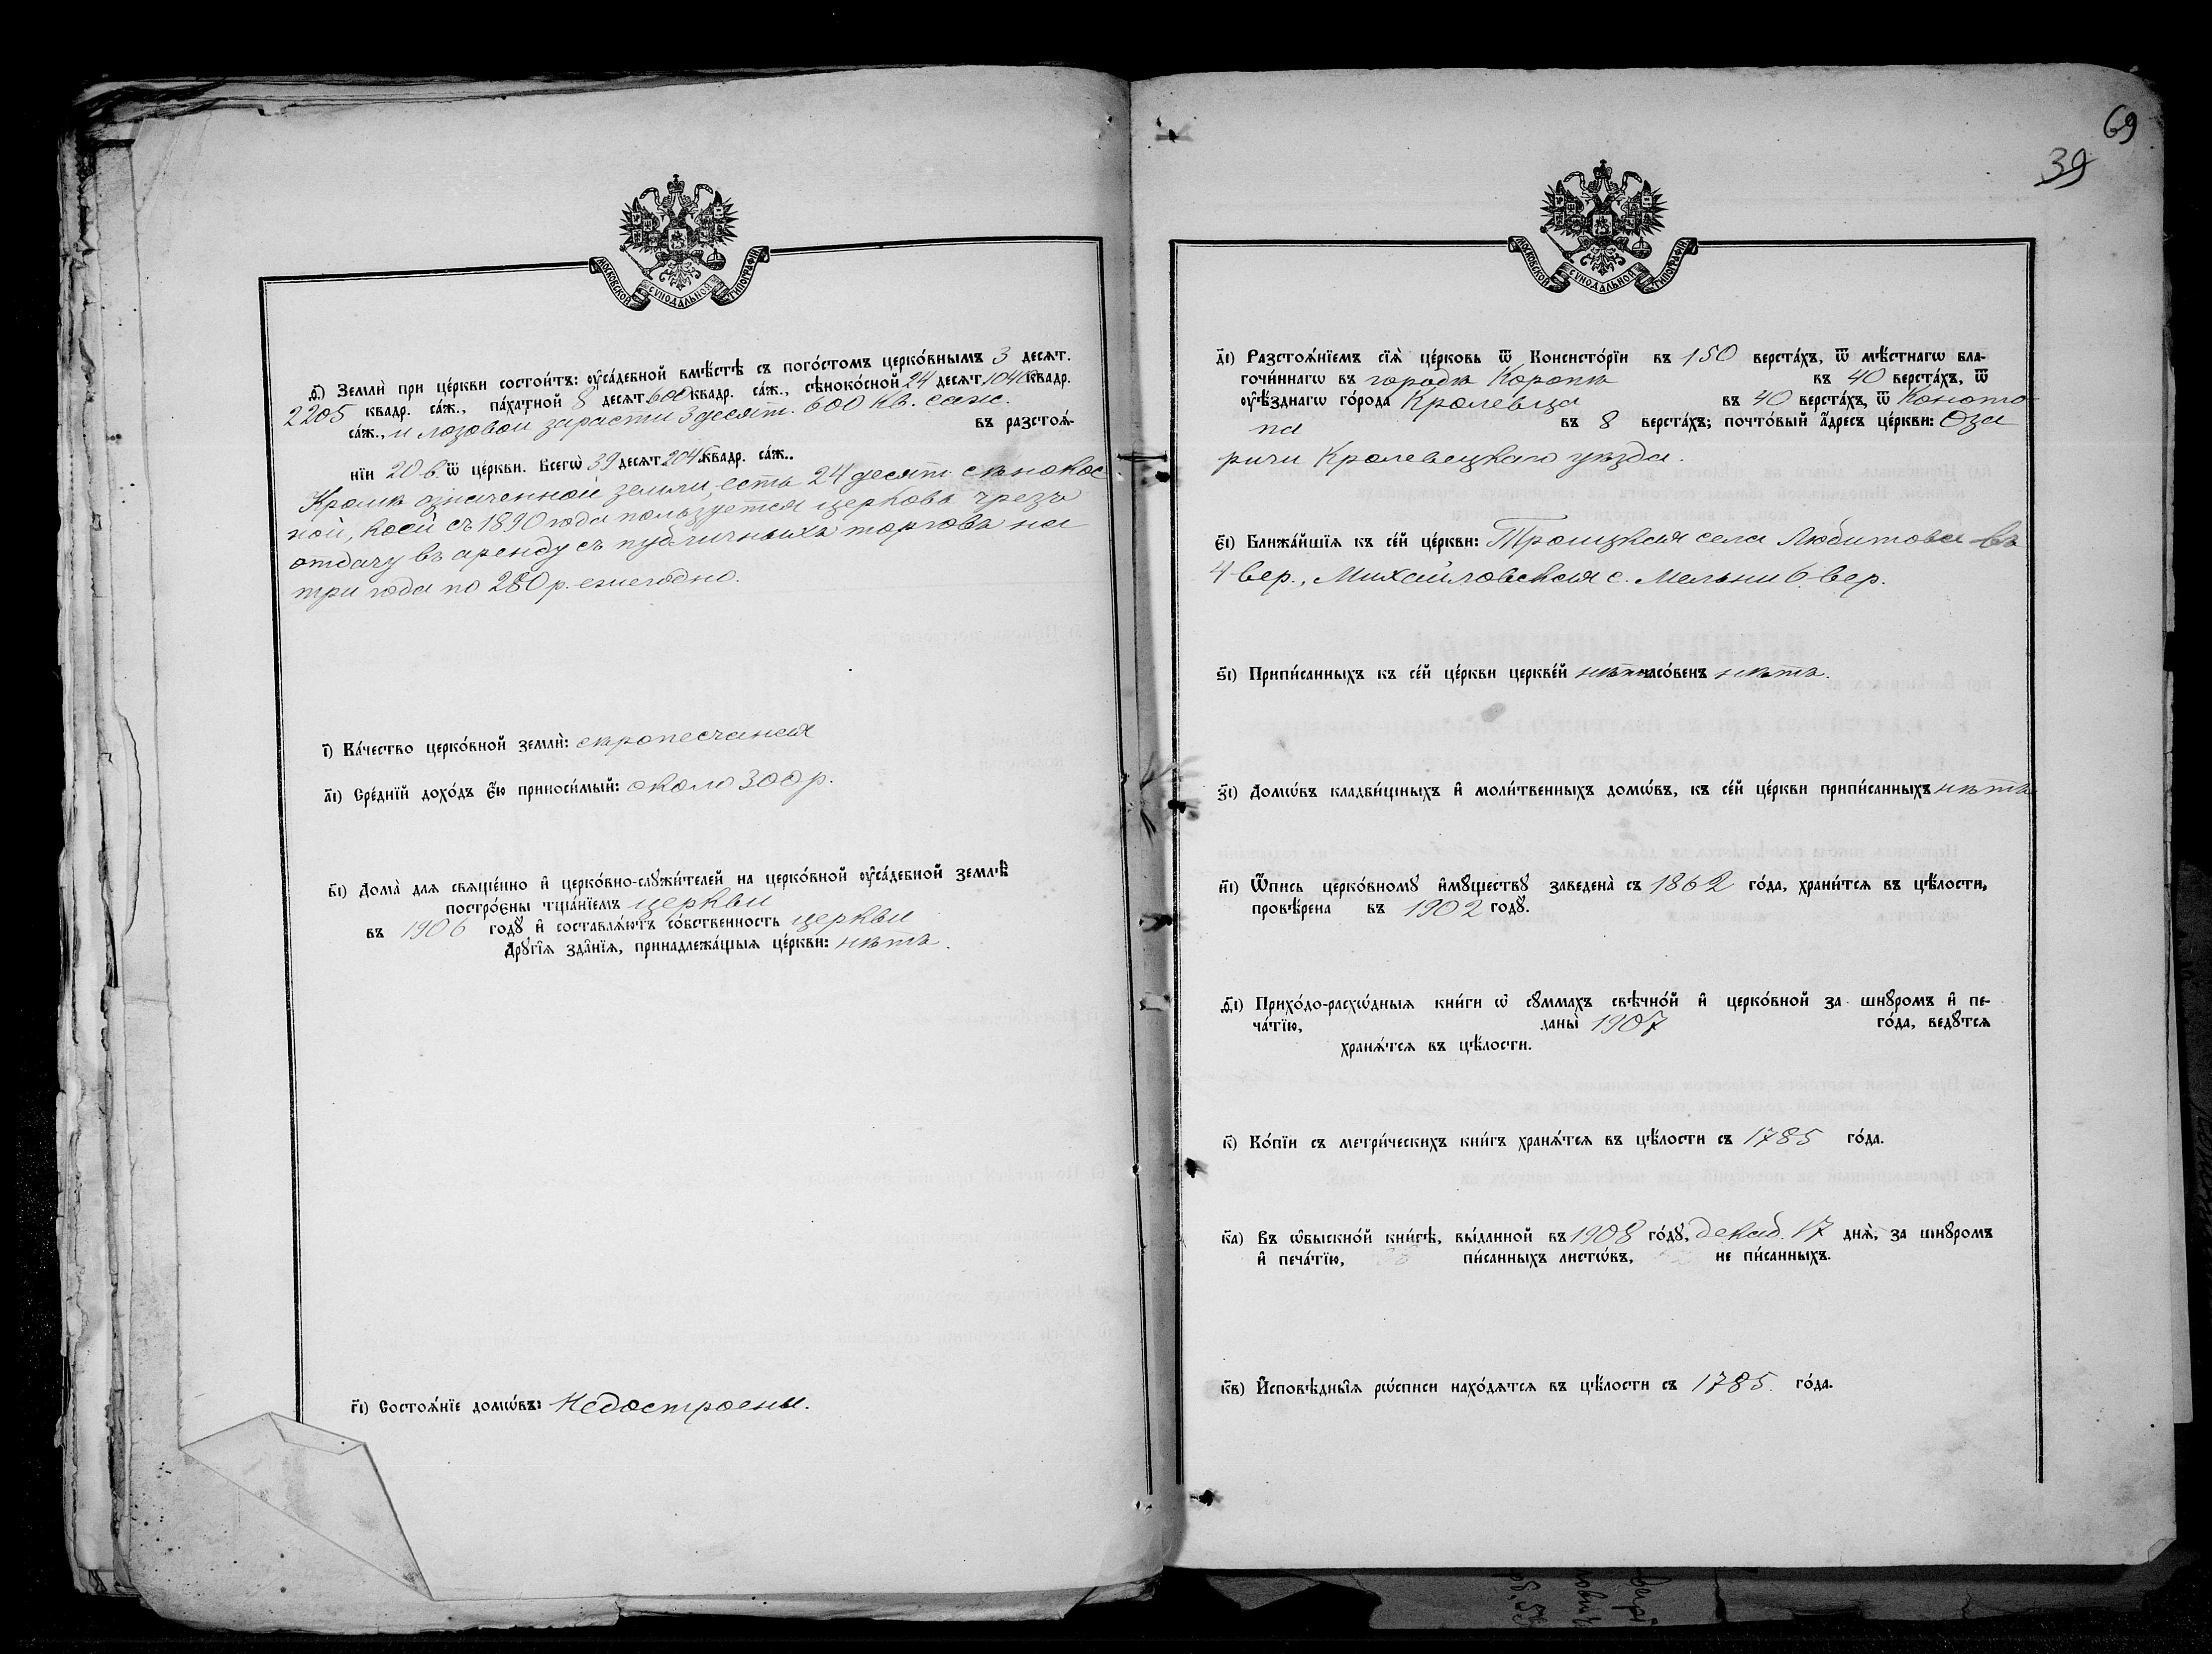 МОСКОВСКОЙ СѴНОДАЛЬНОЙ ТИПОГРАФІИ
ѳ҃) Землѝ при це́ркви состои́тъ: ᲂу҆са́дебной вмѣ́стѣ съ пого́стомъ церко́внымъ 3 десѧт.
2205 квадр. са́ж., па́хатной 8 десѧт 600 квадр. са́ж., сѣноко́сной 24 десѧт. 1040 квадр.
са́ж., и лозовой зарасти 3 десят. 600 кв. саж. въ разстоѧ́-
нїи 20 в. ѿ це́ркви. Всегѡ̀ 39 десѧт. 2045 квадр. са́ж..
Кромѣ означенной земли, есть 24 десят. сѣнокос
ной, коей съ 1890 года пользуется церковь чрезъ
отдачу въ аренду съ публичныхъ торговъ на
три года по 280 р. ежегодно.
і҃) Ка́чество церко́вной землѝ: сѣропесчаная
а҃і) Сре́днїй дохо́дъ є҆́ю приноси́мый: около 300 р.
в҃і) Домà для свѧще́нно и҆ церко́вно-слꙋжи́телей на церко́вной ᲂу҆са́дебной землѣ̀
постро́ены тща́нїемъ церкви
въ 1906 годꙋ̀ и҆ составлѧ́ютъ со́бственность церкви
Дрꙋгі̑ѧ зда̑нїѧ, принадлежа́щыѧ це́ркви: нѣтъ.
г҃і) Состоѧ́нїе домѡ́въ: Недостроены.
69
39
МОСКОВСКОЙ СѴНОДАЛЬНОЙ ТИПОГРАФІИ
д҃і) Разстоѧ́нїемъ сїѧ̀ це́рковь ѿ Консисто́рїи въ 150 верста́хъ, ѿ мѣ́стнагѡ бла-
гочи́ннагѡ въ городѣ Коропѣ въ 40 верста́хъ, ѿ
ᲂу҆ѣ́зднагѡ го́рода Кролевца въ 40 верста́хъ, ѿ Коното-
па въ 8 верста́хъ; почто́вый а҆́дресъ це́ркви: Оза
ричи Кролевецкаго уѣзда.
є҃і) Ближа́йшїѧ къ се́й це́ркви: Троицкая села Любитова въ
4 вер., Михайловская с. Мельни 6 вер.
ѕ҃і) Припи́санныхъ къ се́й це́ркви церкве́й нѣтъ часо́венъ нѣтъ.
з҃і) Домѡ́въ кладби́щныхъ и҆ моли́твенныхъ домѡ́въ, къ се́й це́ркви припи́санныхъ нѣтъ
и҃і) Ѻ҆́пись церко́вномꙋ и҆мꙋ́ществꙋ заведенà съ 1862 го́да, храни́тсѧ въ цѣ́лости,
провѣ́рена въ 1902 годꙋ̀.
ѳ҃і) Прихо́до-расхѡ́дныѧ кни́ги ѡ҆ сꙋ́ммахъ свѣчно́й и҆ церко́вной за шнꙋро́мъ и҆ пе-
ча́тїю, даны̀ 1907 го́да, ведꙋ́тсѧ
хранѧ́тсѧ въ цѣ́лости.
к҃) Ко́пїи съ метри́ческихъ кни́гъ хранѧ́тсѧ въ цѣ́лости съ 1785 го́да.
к҃а) Въ ѡ҆быскно́й кни́гѣ, вы́данной въ 1908 го́дꙋ, декаб. 17 днѧ̀, за шнꙋро́мъ
и҆ печа́тїю, пи́санныхъ листѡ́въ, не пи́санныхъ.
к҃в) И҆сповѣ́дныѧ рѡ́списи нахо́дѧтсѧ въ цѣ́лости съ 1785. го́да.